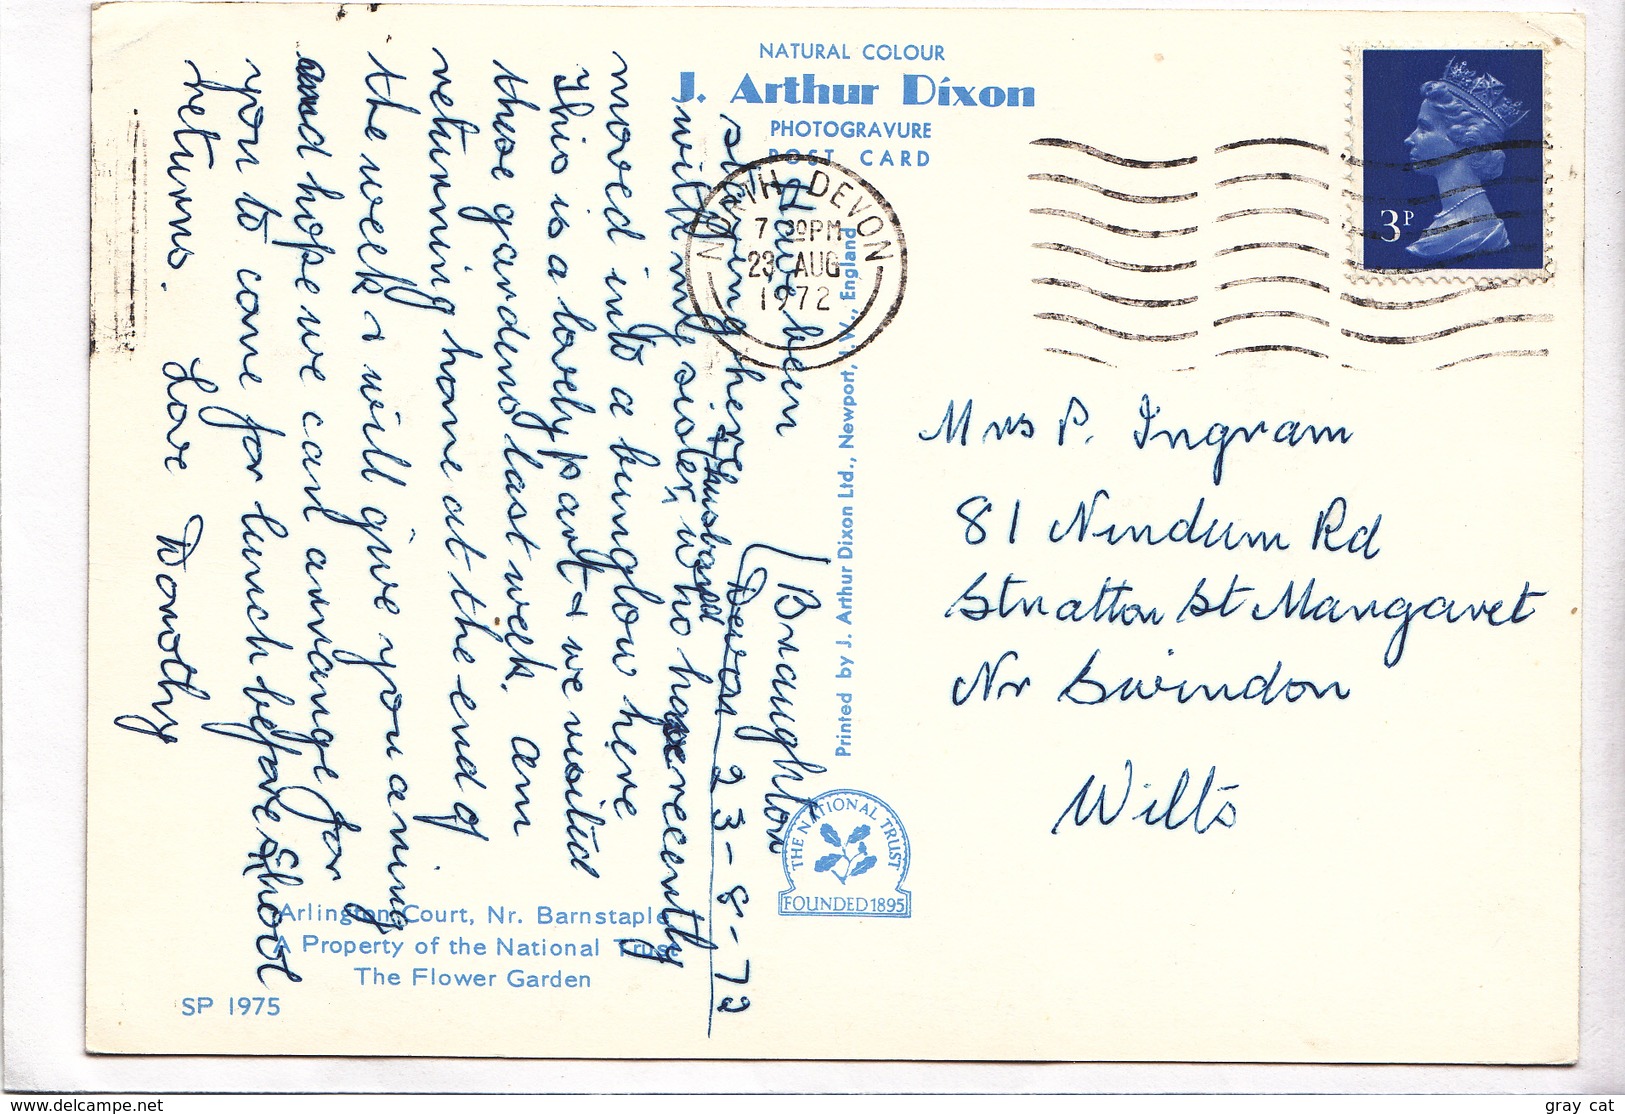 NATURAL COLOUR
J. Arthur Dixon
PHOTOGRAVURE
POST CARD
NORTH DEVON
7 30PM
23 AUG
1972
3P
Braughton
Devon 23-8-72
Have been
staying here
with my sister, + husband who have recently
moved into a bunglow here
This is a lovely part & we visited
these gardens last week. am
returning home at the end of
the week & will give you a ring
and hope we can arrange for
you to come for lunch before School
returns. Love Dorothy
Mrs P. Ingram
81 Nindum Rd
Stratton St Margaret
Nr Swindon
Wilts
Printed by J. Arthur Dixon Ltd., Newport, I.W., England
THE NATIONAL TRUST
FOUNDED 1895
Arlington Court, Nr. Barnstaple
A Property of the National Trust
The Flower Garden
SP 1975
www.delcampe.net
gray cat